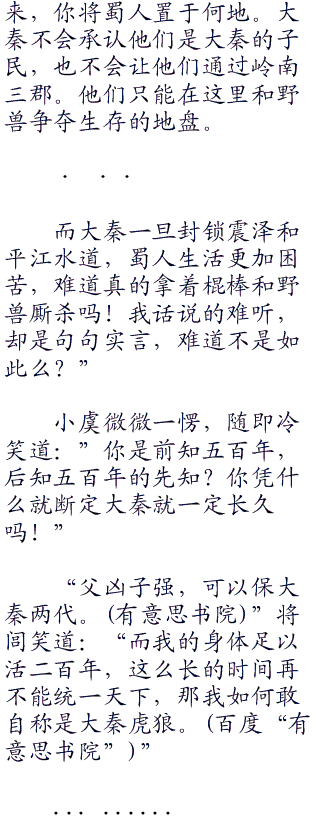 来，你将蜀人置于何地。大
秦不会承认他们是大秦的子
民，也不会让他们通过岭南
三郡。他们只能在这里和野
兽争夺生存的地盘。
. . .
而大秦一旦封锁震泽和
平江水道，蜀人生活更加困
苦，难道真的拿着棍棒和野
兽厮杀吗！我话说的难听，
却是句句实言，难道不是如
此么？”
小虞微微一愣，随即冷
笑道：”你是前知五百年，
后知五百年的先知？你凭什
么就断定大秦就一定长久
吗！”
“父凶子强，可以保大
秦两代。(有意思书院)”将
闾笑道：“而我的身体足以
活二百年，这么长的时间再
不能统一天下，那我如何敢
自称是大秦虎狼。(百度“有
意思书院”)”
... ......